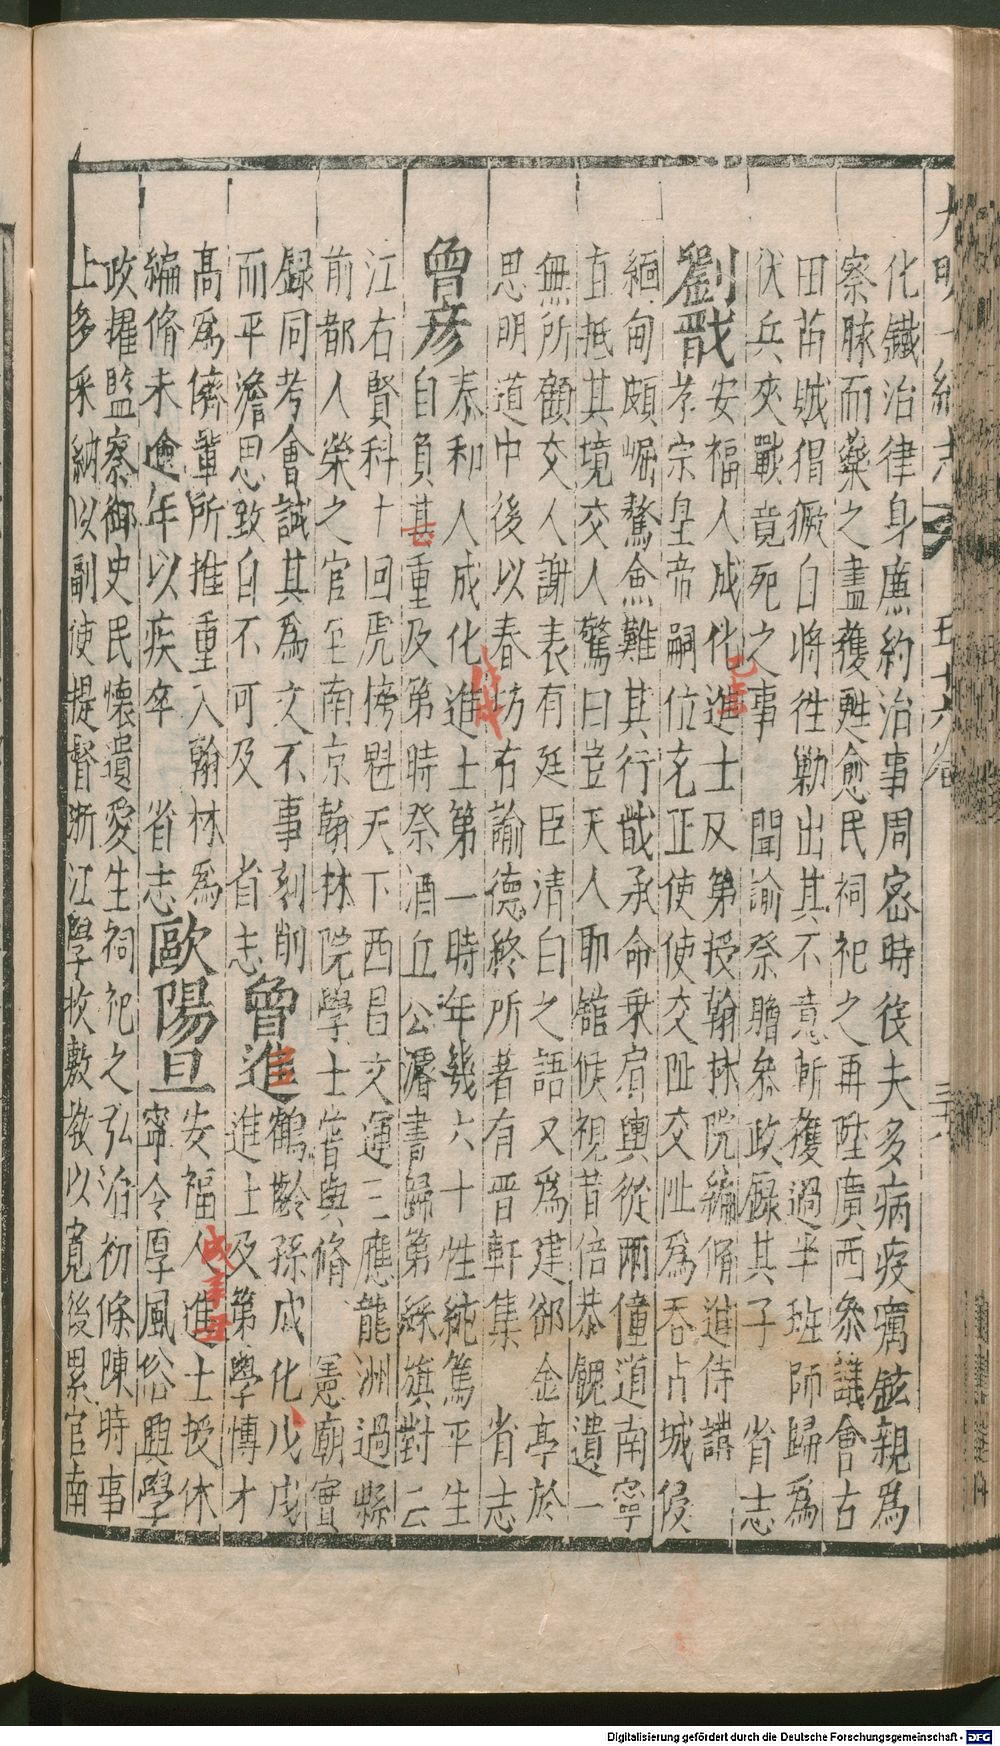 大明一統志 五十六卷 三十六
化鐵治律身廉約治事周密時役夫多病疫癘鉉親爲
察脉而藥之盡獲甦愈民祠祀之再陞廣西叅議會古
田苗賊猖獗自將徃勦出其不意斬獲過半班師歸爲
伏兵夾戰竟死之事 聞諭祭贈叅政録其子 省志
劉戩 安福人成化進士及第授翰林院編脩進侍講
孝宗皇帝嗣位充正使使交阯交阯爲吞占城侵
緬甸頗崛驁僉難其行戩承命乗肩輿從兩僮道南寧
直抵其境交人驚曰豈天人耶舘候視昔倍恭餽遺一
無所顧交人謝表有廷臣清白之語又爲建郤金亭於
思明道中後以春坊右諭德終所著有晉軒集 省志
曾彦 泰和人成化進士第一時年幾六十性純篤平生
戊戌
自負甚重及第時祭酒丘公濬書歸第綵旗對云
江右賢科十回虎榜魁天下西昌文運三應龍洲過縣
前都人榮之官至南京翰林院學士嘗與脩 憲廟實
録同考會試其爲文不事刻削
而平澹思致自不可及 省志
曾進 鶴齡孫成化戊戌
進士及第學博才
高爲儕輩所推重入翰林爲
編脩未逾年以疾卒 省志
歐陽旦 安福人進士授休
成辛丑
寧令厚風俗興學
政擢監察御史民懷遺愛生祠祀之弘治初條陳時事
上多采納以副使提督浙江學政敷教以寬後累官南
Digitalisierung gefördert durch die Deutsche Forschungsgemeinschaft - DFG